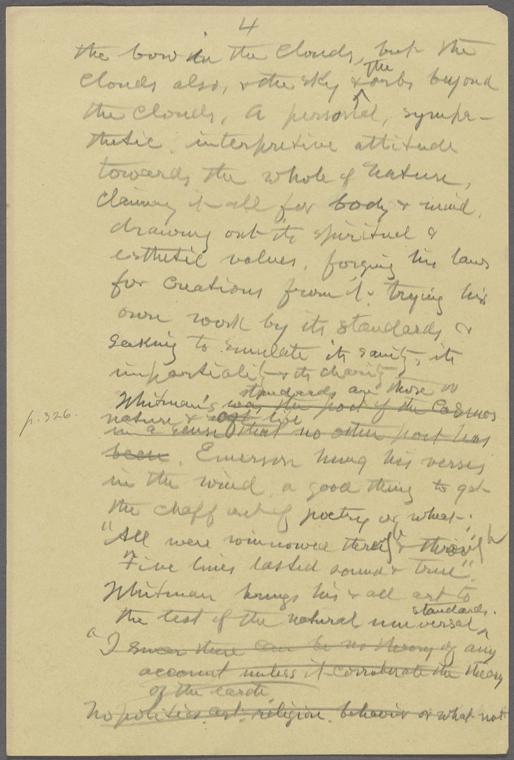 4
the bow in the clouds, but the
clouds also, & the sky & the orbs beyond
the clouds, A personal, sympa-
thetic, interpretive attitude
towards the whole of Nature,
claiming it all for body & mind,
drawing out its spiritual &
esthetic values, forging his laws
for creations from it, trying his
own work by its standards &
seeking to emulate its sanity, its
impartiality & its charity.
standards are those of
Whitman's was the poet of the Cosmos
nature & life
p. 326. in a sense that no other poet has
been. Emerson hung his verses
in the wind, a good thing to get
the chaff out of poetry or wheat;
"All were winnowed through & through
Five lines lasted sound & true".
Whitman brings his & all art to
the test of the natural universal standards.
"I swear there can be no theory of any
account unless it corroborate the theory
of the earth
No politics, art, religion, behavior or what not